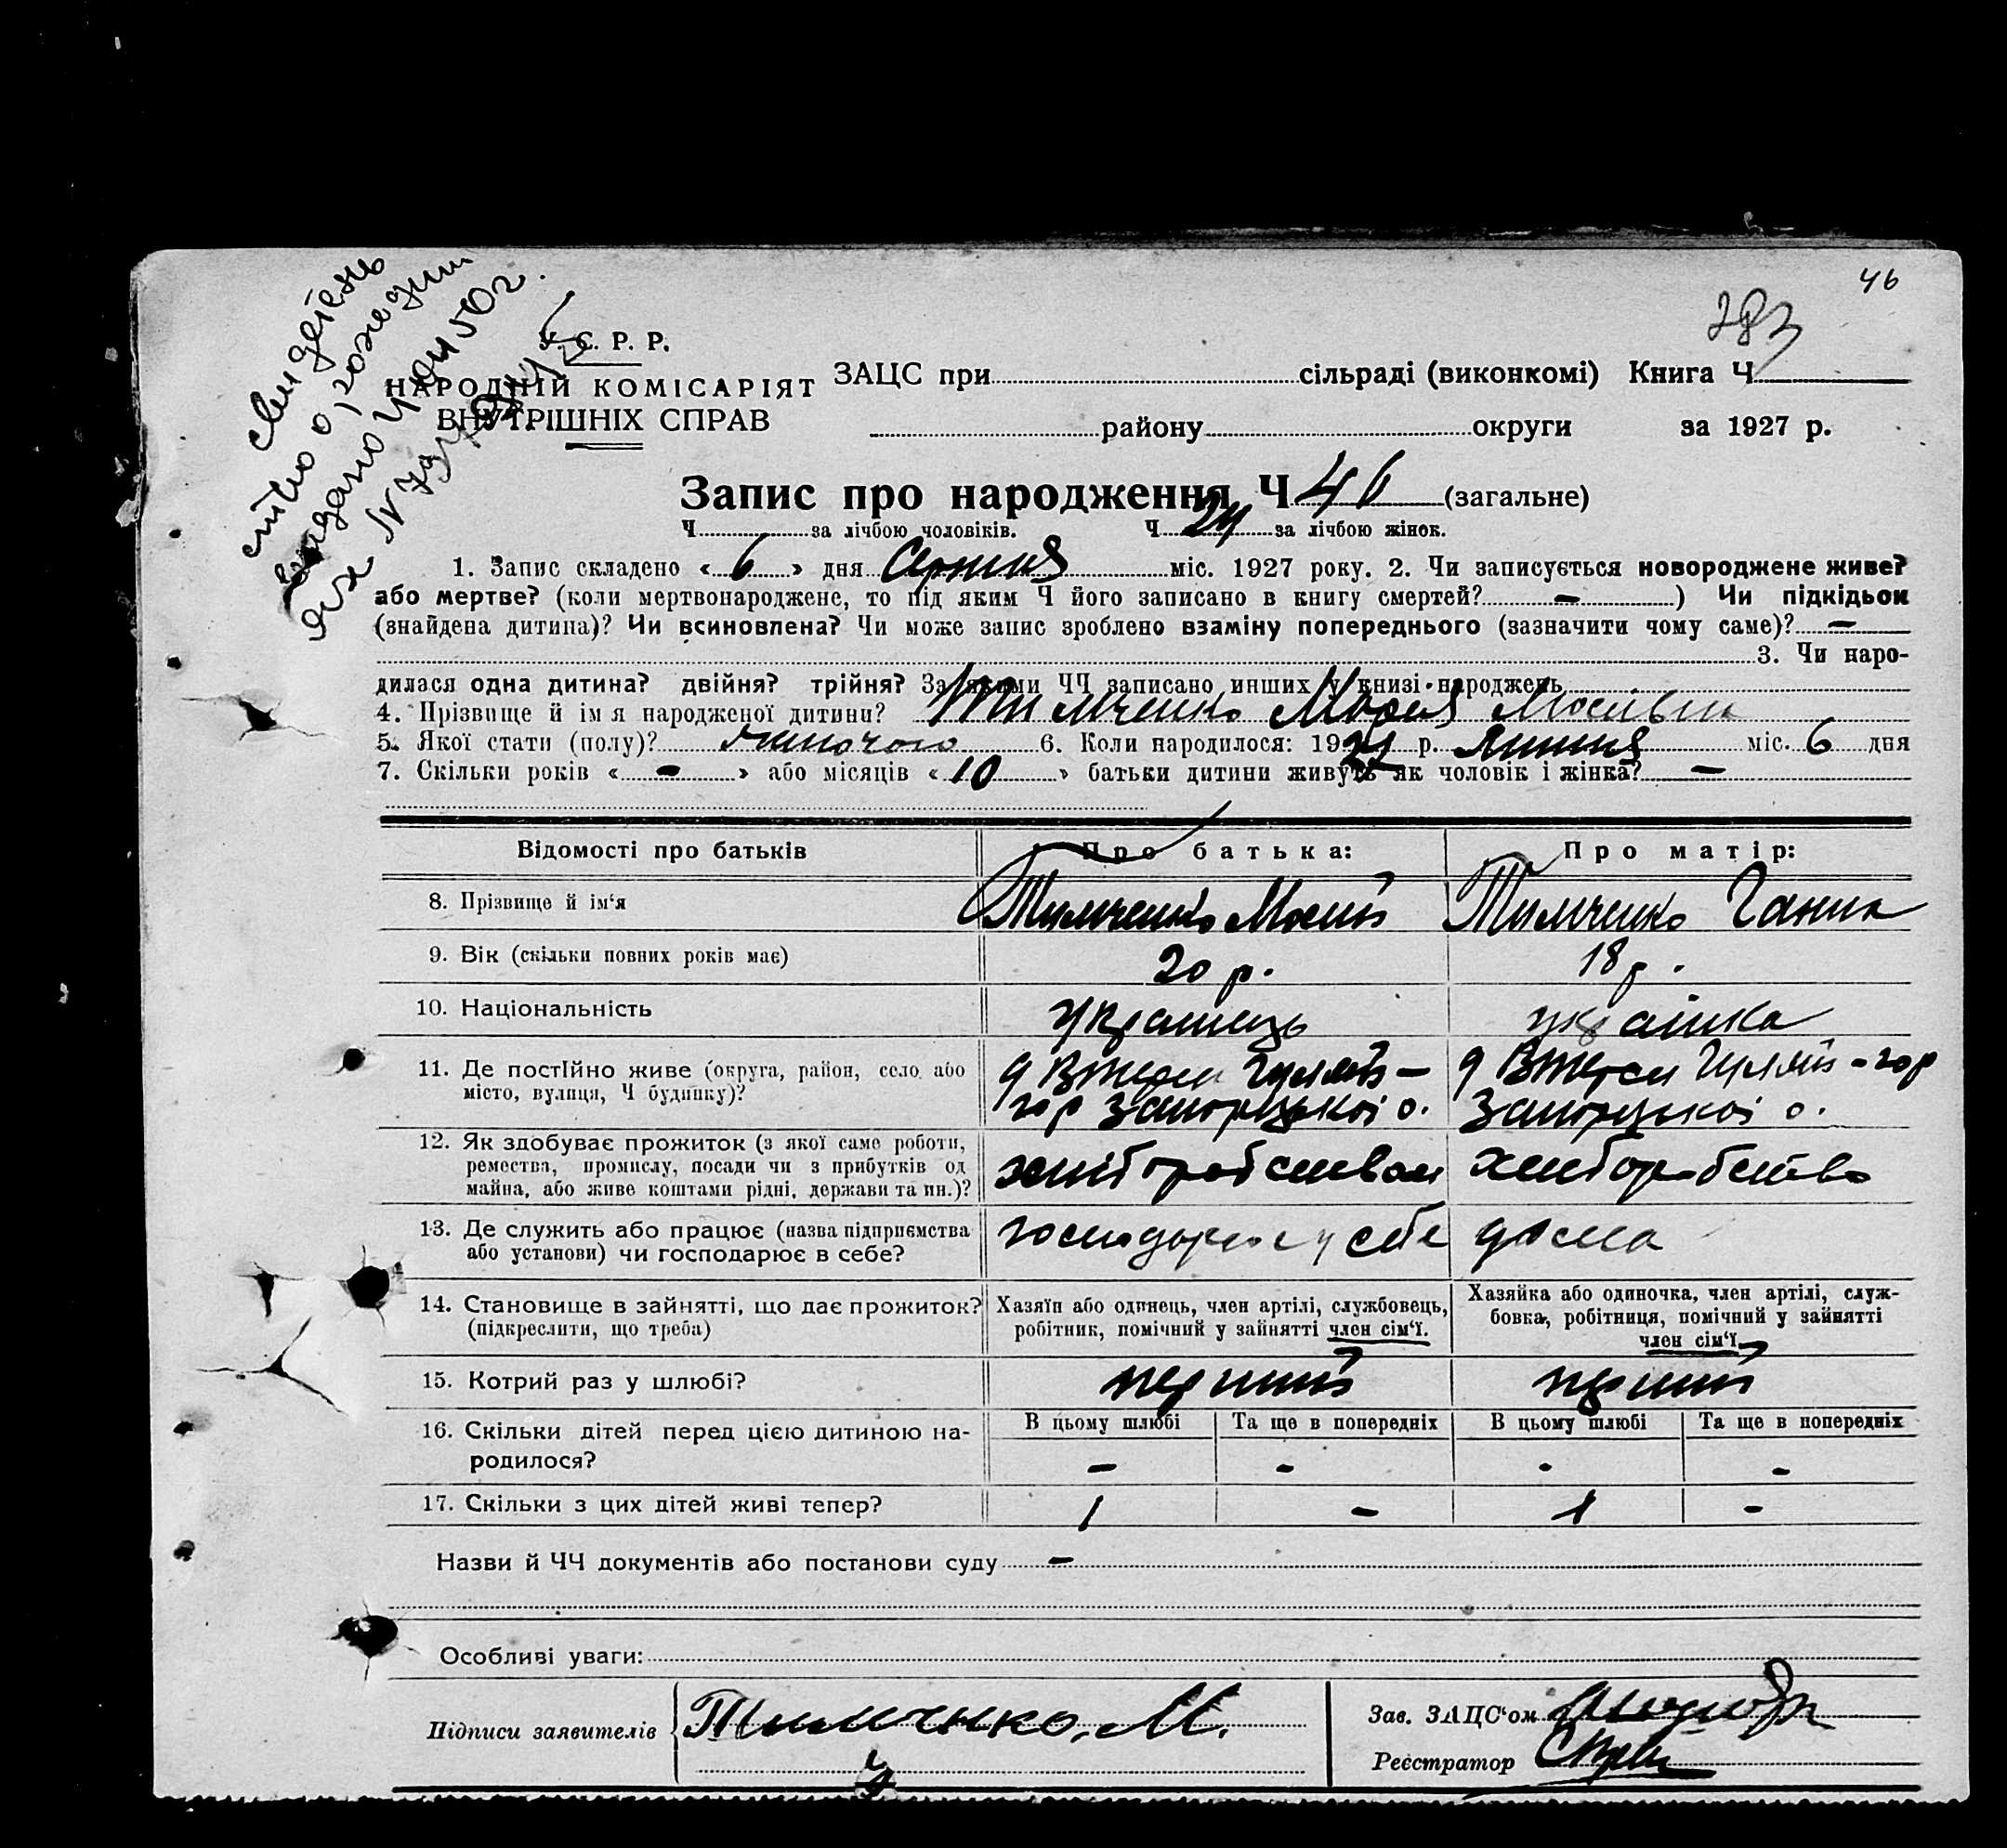 46
283
свидетель
ство о рожден
выдано
У. С. Р. Р.
НАРОДНІЙ КОМІСАРІЯТ
ВНУТРІШНІХ СПРАВ
ЗАЦС при сільраді (виконкомі) Книга Ч
району округи за 1927 р.
Запис про народження Ч 46 (загальне)
Ч за лічбою чоловіків. Ч 24 за лічбою жінок.
1. Запис складено «6» дня Серпня міс. 1927 року. 2. Чи записується новороджене живе?
або мертве? (коли мертвонароджене, то під яким Ч його записано в книгу смертей? -) Чи підкідьок
(знайдена дитина)? Чи всиновлена? Чи може запис зроблено взаміну попереднього (зазначити чому саме)? -
3. Чи наро-
дилася одна дитина? двійня? трійня? За якими ЧЧ записано инших у книзі народжень
4. Прізвище й ім я народженої дитини? Тимченко Мария
5. Якої стати (полу)? жиночого 6. Коли народилося: 1927 р. Липня міс. 6 дня
7. Скільки років «-» або місяців «10» батьки дитини живуть як чоловік і жінка? -
Відомості про батьків Про батька: Про матір:
8. Прізвище й ім‘я Тимченко Мосий Тимченко Ганна
9. Вік (скільки повних років має) 20 р. 18 р.
10. Національність українець українка
11. Де постійно живе (округа, район, село або
місто, вулиця, Ч будинку)?
гор Запорізької о. Запорізької о.
12. Як здобуває прожиток (з якої саме роботи,
ремества, промислу, посади чи з прибутків од
майна, або живе коштами рідні, держави та ин.)?
хліборобством хлиборобство
13. Де служить або працює (назва підприємства
або установи) чи господарює в себе?
господарює у себе дома
14. Становище в зайнятті, що дає прожиток?
(підкреслити, що треба)
Хазяїн або одинець, член артілі, службовець,
робітник, помічний у зайнятті член сім‘ї.
Хазяйка або одиночка, член артілі, служ-
бовка, робітниця, помічний у зайнятті
член сім‘ї
15. Котрий раз у шлюбі? перший перший
16. Скільки дітей перед цією дитиною на-
родилося?
В цьому шлюбі Та ще в попередніх В цьому шлюбі Та ще в попередніх
- - - -
17. Скільки з цих дітей живі тепер? 1 - 1 -
Назви й ЧЧ документів або постанови суду -
Особливі уваги:
Підписи заявителів Тимченко. М.
Зав. ЗАЦС‘ом
Реєстратор